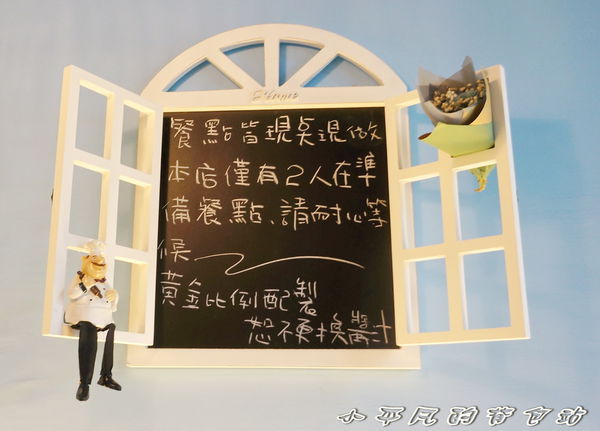 餐點皆現點現做
本店僅有2人在準
備餐點、請耐心等
候
黃金比例配製
恕不更換醬汁
小平凡的背包站